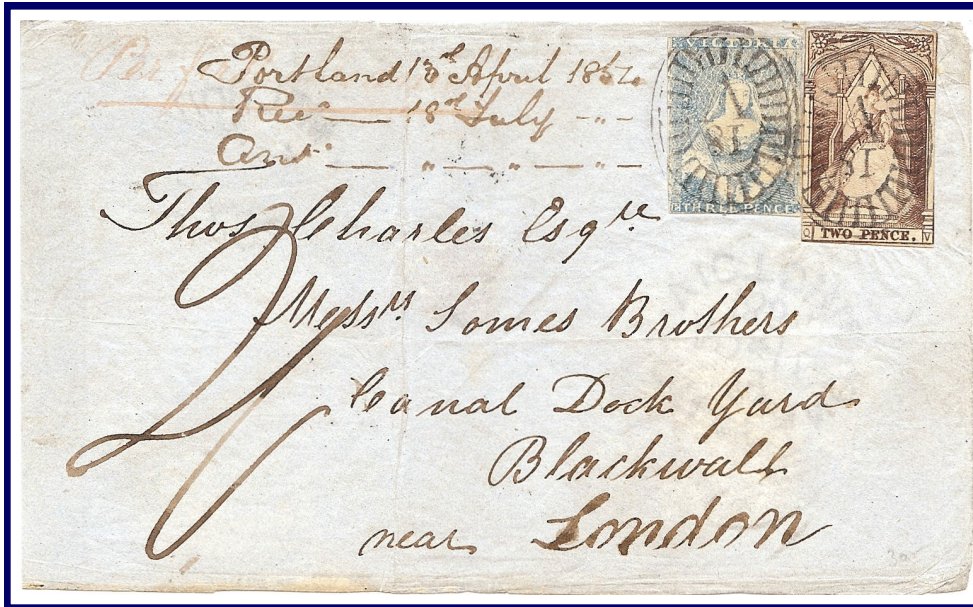 Per
Portland 13th April 1854
Rec — 18th July -"-
Ans — " — " — —
Thos Charles Esqre
Messrs Somes Brothers
Canal Dock Yard
Blackwall
near London
2
VICTORIA
THREE PENCE
V
18
TWO PENCE.
Q V
V
18